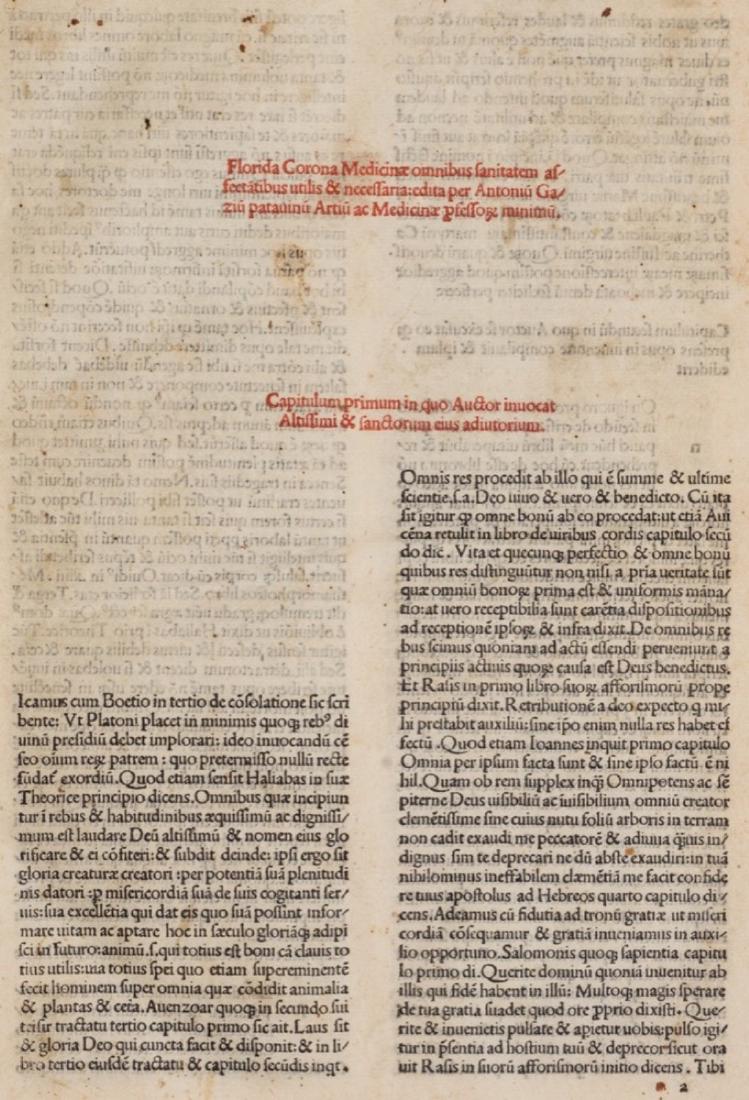 Florida Corona Medicinæ omnibus sanitatem af/
fectātibus utilis & necessaria: edita per Antoniū Ga/
ziū patauinū Artiū ac Medicinæ ꝓfessoꝝ minimū.
Capitulum primum in quo Auctor inuocat
Altissimi & sanctorum eius adiutorium.
Icamus cum Boetio in tertio de cōsolatione sic scri
bente: Vt Platoni placet in minimis quoqꝫ rebꝰ di
uinū presidiū debet implorari: ideo inuocandū cē
seo oīum reꝝ patrem: quo pretermisso nullū recte
fūdať exordiū. Quod etiam sensit Haliabas in suæ
Theorice principio dicens. Omnibus quæ incipiun
tur ī rebus & habitudinibus æquissimū ac dignissi/
mum est laudare Deū altissimū & nomen eius glo
rificare & ei cōfiteri: & subdit deinde: ipsi ergo sit
gloria creaturæ creatori: per potentiā suā plenitudi
nis datori: ꝑ misericordiā suā de suis cogitanti ser/
uis: sua excellētia qui dat eis quo suā possint infor/
mare uitam ac aptare hoc in sæculo gloriāqꝫ adipi
sci in futuro: animū.s. qui totius est boni cā clauis to
tius utilis: uia totius spei quo etiam supereminentē
fecit hominem super omnia quæ cōdidit animalia
& plantas & ceťa. Auenzoar quoqꝫ in secundo sui
teisir tractatu tertio capitulo primo sic ait. Laus sit
& gloria Deo qui cuncta facit & disponit: & in li/
bro tertio eiusdē tractatu & capitulo secūdis inqt.
Omnis res procedit ab illo qui ē summe & ultime
scientie.s.a. Deo uiuo & uero & benedicto. Cū ita
sit igitur ꝙ omne bonū ab eo procedat: ut etiā Aui
cēna retulit in libro de uiribus cordis capitulo secū
do dic̄. Vita et quecunqꝫ perfectio & omne bonū
quibus res distinguūtur non nisi a pria ueritate sūt
quæ omniū bonoꝝ prima est & uniformis māna/
tio: at uero receptibilia sunt carētia dispositionibus
ad receptionē ipsoꝝ & infra dixit. De omnibus re
bus scimus quoniam ad actū essendi perueniunt a
principiis actiuis quoꝝ causa est Deus benedictus.
Et Rasis in primo libro suoꝝ afforismorū prope
principiū dixit. Retributionē a deo expecto q mi/
hi prestabit auxiliū: sine ip̄o enim nulla res habet ef
fectū. Quod etiam Ioannes inquit primo capitulo
Omnia per ipsum facta sunt & sine ipso factū ē ni
hil. Quam ob rem supplex inqꝫ Omnipotens ac sē
piterne Deus uisibiliū ac īuisibilium omniū creator
clemētissime sine cuius nutu foliū arboris in terram
non cadit exaudi me peccatorē & adiuua q̄uis in/
dignus sim te deprecari ne dū abs te exaudiri: in tuā
nihilominus ineffabilem clæmētiā me facit confide
re tuus apostolus ad Hebreos quarto capitulo di/
cens. Adeamus cū fidutia ad tronū gratiæ ut miseri
cordiā cōsequamur & gratiā inueniamus in auxi/
lio opportuno. Salomonis quoqꝫ sapientia capitu
lo primo di. Querite dominū quoniā inuenitur ab
illis qui fidē habent in illū: Multoqꝫ magis sperare
de tua gratia suadet quod ore ꝓprio dixisti. Que/
rite & inuenietis pulsate & apietur uobis: pulso igi/
tur in p̄sentia ad hostium tuū & deprecor sicut ora
uit Rasis in suorū afforismorū initio dicens. Tibi
a 2